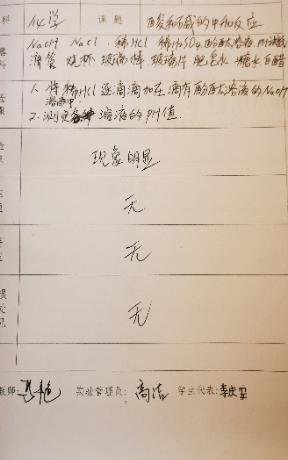 科 化学 课题 酸和碱的中和反应
NaOH NaCl 稀HCl 稀H2SO4 酚酞溶液 pH试纸
滴管 烧杯 玻璃棒 玻璃片 肥皂水 糖水 白醋
1. 将稀HCl逐滴滴加在滴有酚酞溶液的NaOH
溶液中.
2. 测定各种溶液的PH值
现象明显
无
无
无
教师: 实验管理员: 高洁 学生代表: